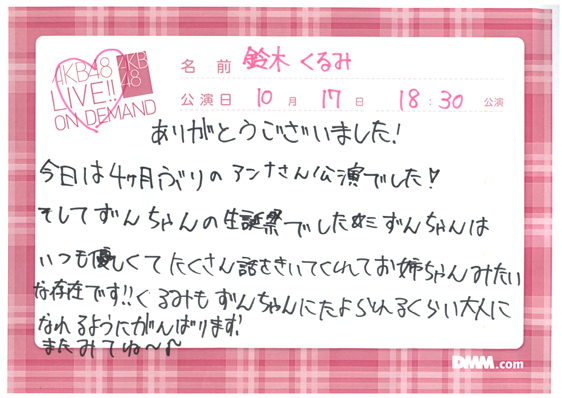 AKB48
LIVE!!
ON DEMAND
AKB
48
名前 鈴木くるみ
公演日 10月 17日 18:30 公演
ありがとうございました!
今日は4ヶ月ぶりのアンナさん公演でした♡
そしてずんちゃんの生誕祭でした ずんちゃんは
いつも優しくてたくさん話をきいてくれてお姉ちゃんみたい
な存在です!!くるみもずんちゃんにたよられるくらい大人に
なれるようにがんばります!
またみてね〜♪
DMM.com